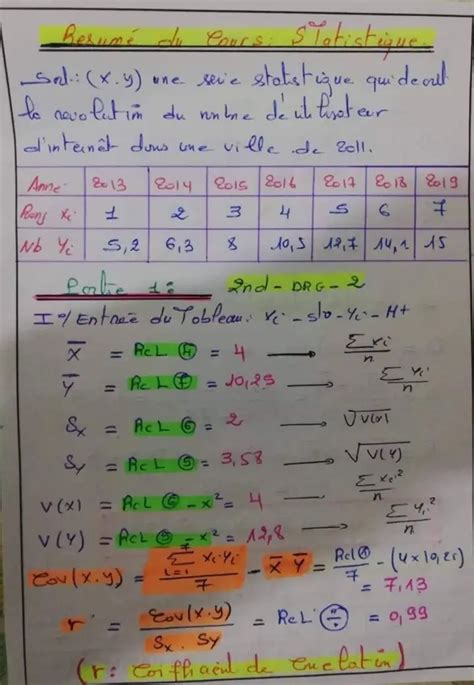 Resumé du Cours: STatistique.
Soit: (x.y) une serie statistique qui decrit
la revolution du nombre d'utilisateur
d'internêt dans une ville de 2011.
Anne 2013 2014 2015 2016 2017 2018 2019
Rang xi 1 2 3 4 5 6 7
Nb yi 5,2 6,3 8 10,5 12,7 14,1 15
Partie 1: 2nd - DRG - 2
I°/ Entrée du Tableau: xi - sto - yi - M+
X̅ = RCL ④ = 4 → Σxi/n
Y̅ = RCL ⑦ = 10,25 → Σyi/n
Sx = RCL ⑥ = 2 → √V(x)
Sy = RCL = 3,58 → √V(y)
V(x) = RCL - x² = 4 Σxi²/n
V(y) = RCL - x² = 12,8 → Σyi²/n
Cov(x.y) = Σ xi yi / 7 - X̅ Y̅ = RCL / 7 - (4 x 10,25)
= 7,13
r = Cov(x.y) / Sx . Sy = RCL ÷ = 0,99
(r: Coifficient de Correlation)